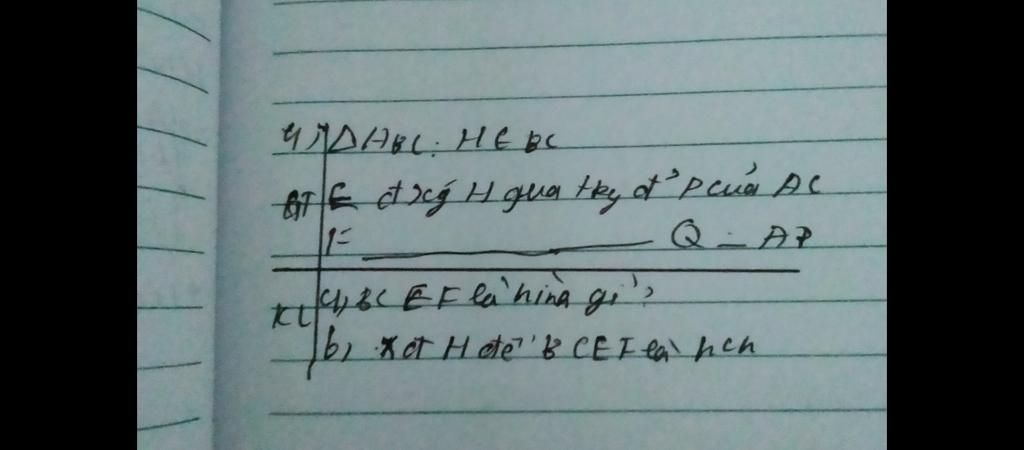 4) △ABC: H ∈ BC
GT E đxứ H qua tkg đ' P của AC
F ——— Q — AB
KL a) BCEF là hình gì?
b, Xđ H để BCEF là hcn